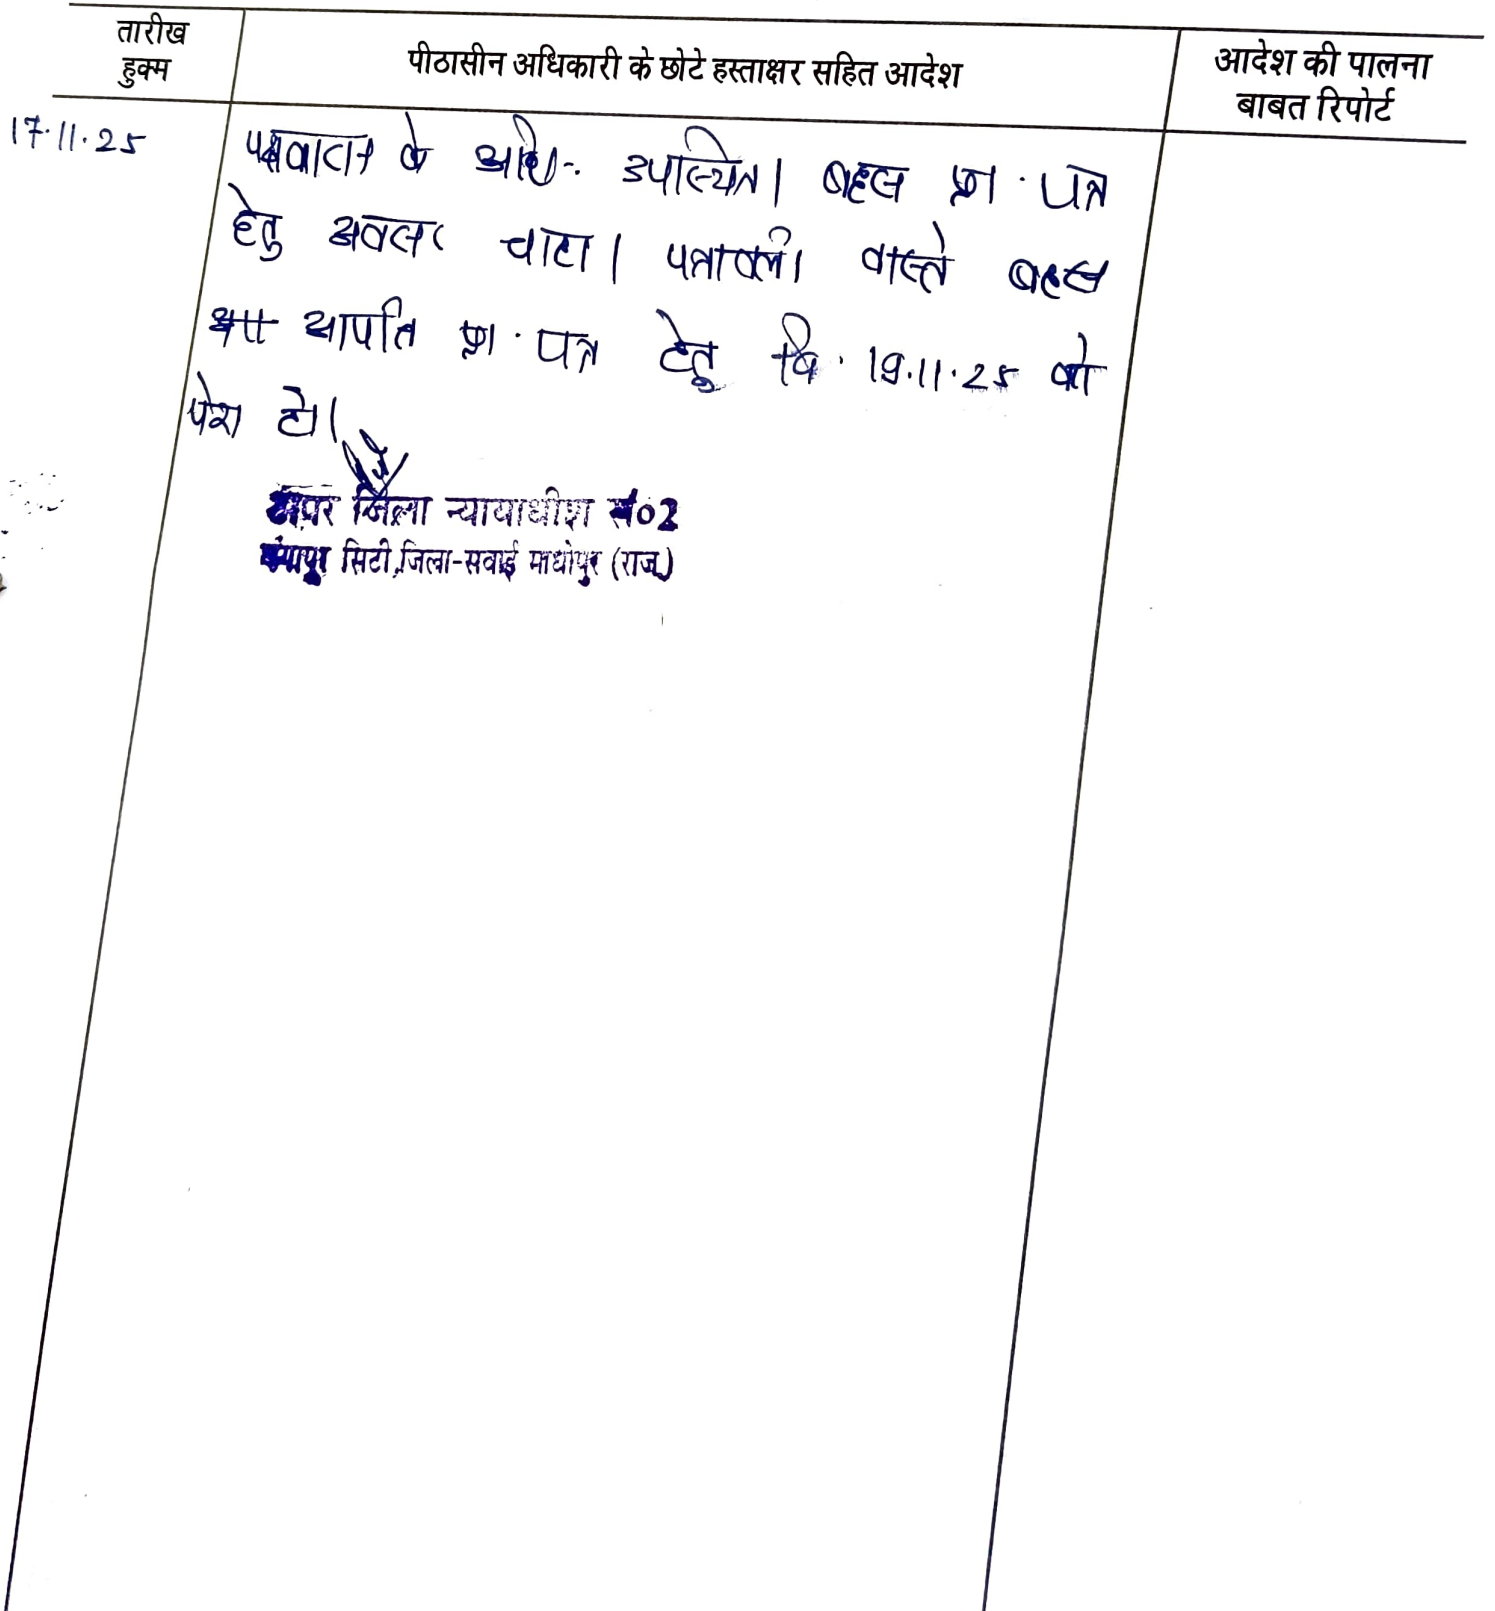 तारीख
हुक्म
पीठासीन अधिकारी के छोटे हस्ताक्षर सहित आदेश
आदेश की पालना
बाबत रिपोर्ट
17.11.25
पक्षकारान के अधि. उपस्थित। बहस प्रा. पत्र
हेतु अवसर चाहा। पत्रावली वास्ते बहस
आपत्ति प्रा. पत्र हेतु दि. 19.11.25 को
पेश हो।
अपर जिला न्यायाधीश सं02
गंगापुर सिटी,जिला-सवाई माधोपुर (राज)